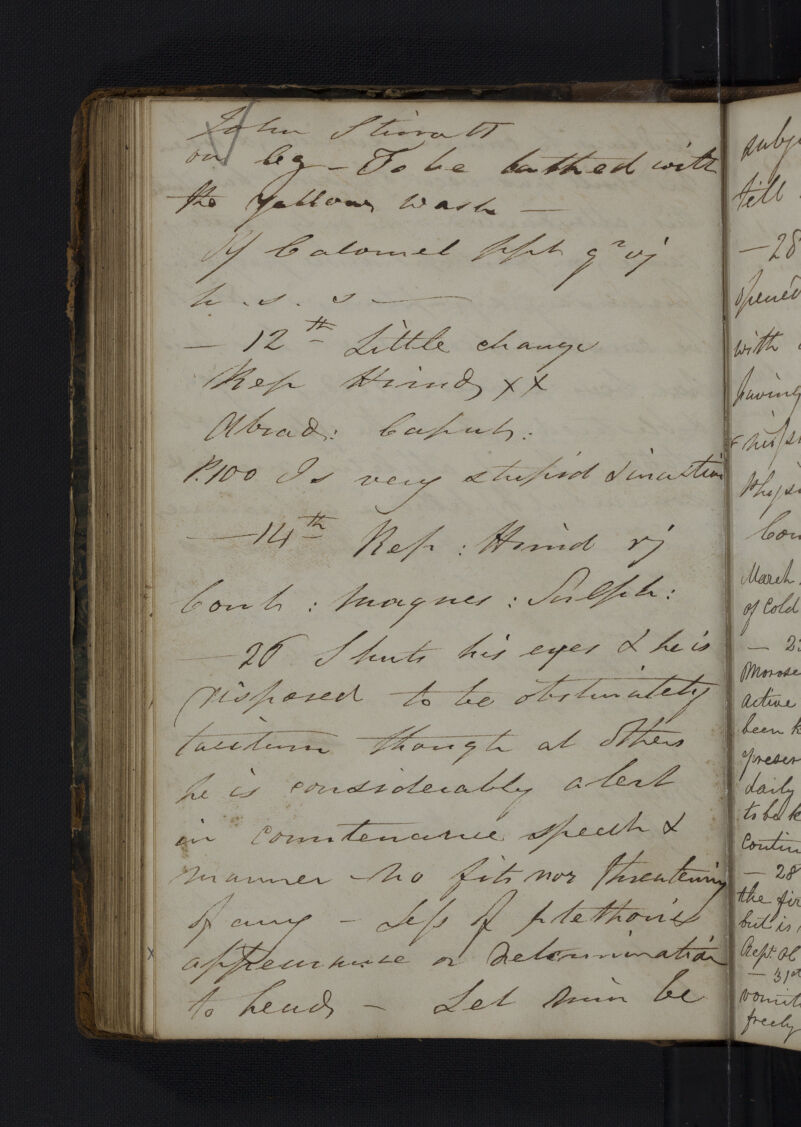 John Stirratt
on leg - To be bathed with
the yellow wash —
Calomel ppt gr vj
h . s . s —
— 12th Little change
Rep Hirud xx
Abrad: Caput:
P.100 Is very stupid & inactive
— 14th Rep : Hirud vj
Cont : magnes : Sulph :
— 26 Shuts his eyes & he is
disposed to be obstinately
taciturn though at others
he is considerably alert
in countenance speech &
manner - No fits nor threatening
of any - Less of plethoric
appearance or determination
to head - Let him be
subje
till
— 28
opened
with
having
Physi
Con
March
of cold
— 2
Morose
active
been k
preser
daily
to be k
contin
— 28
the fir
but is
— 31st
vomit
freely